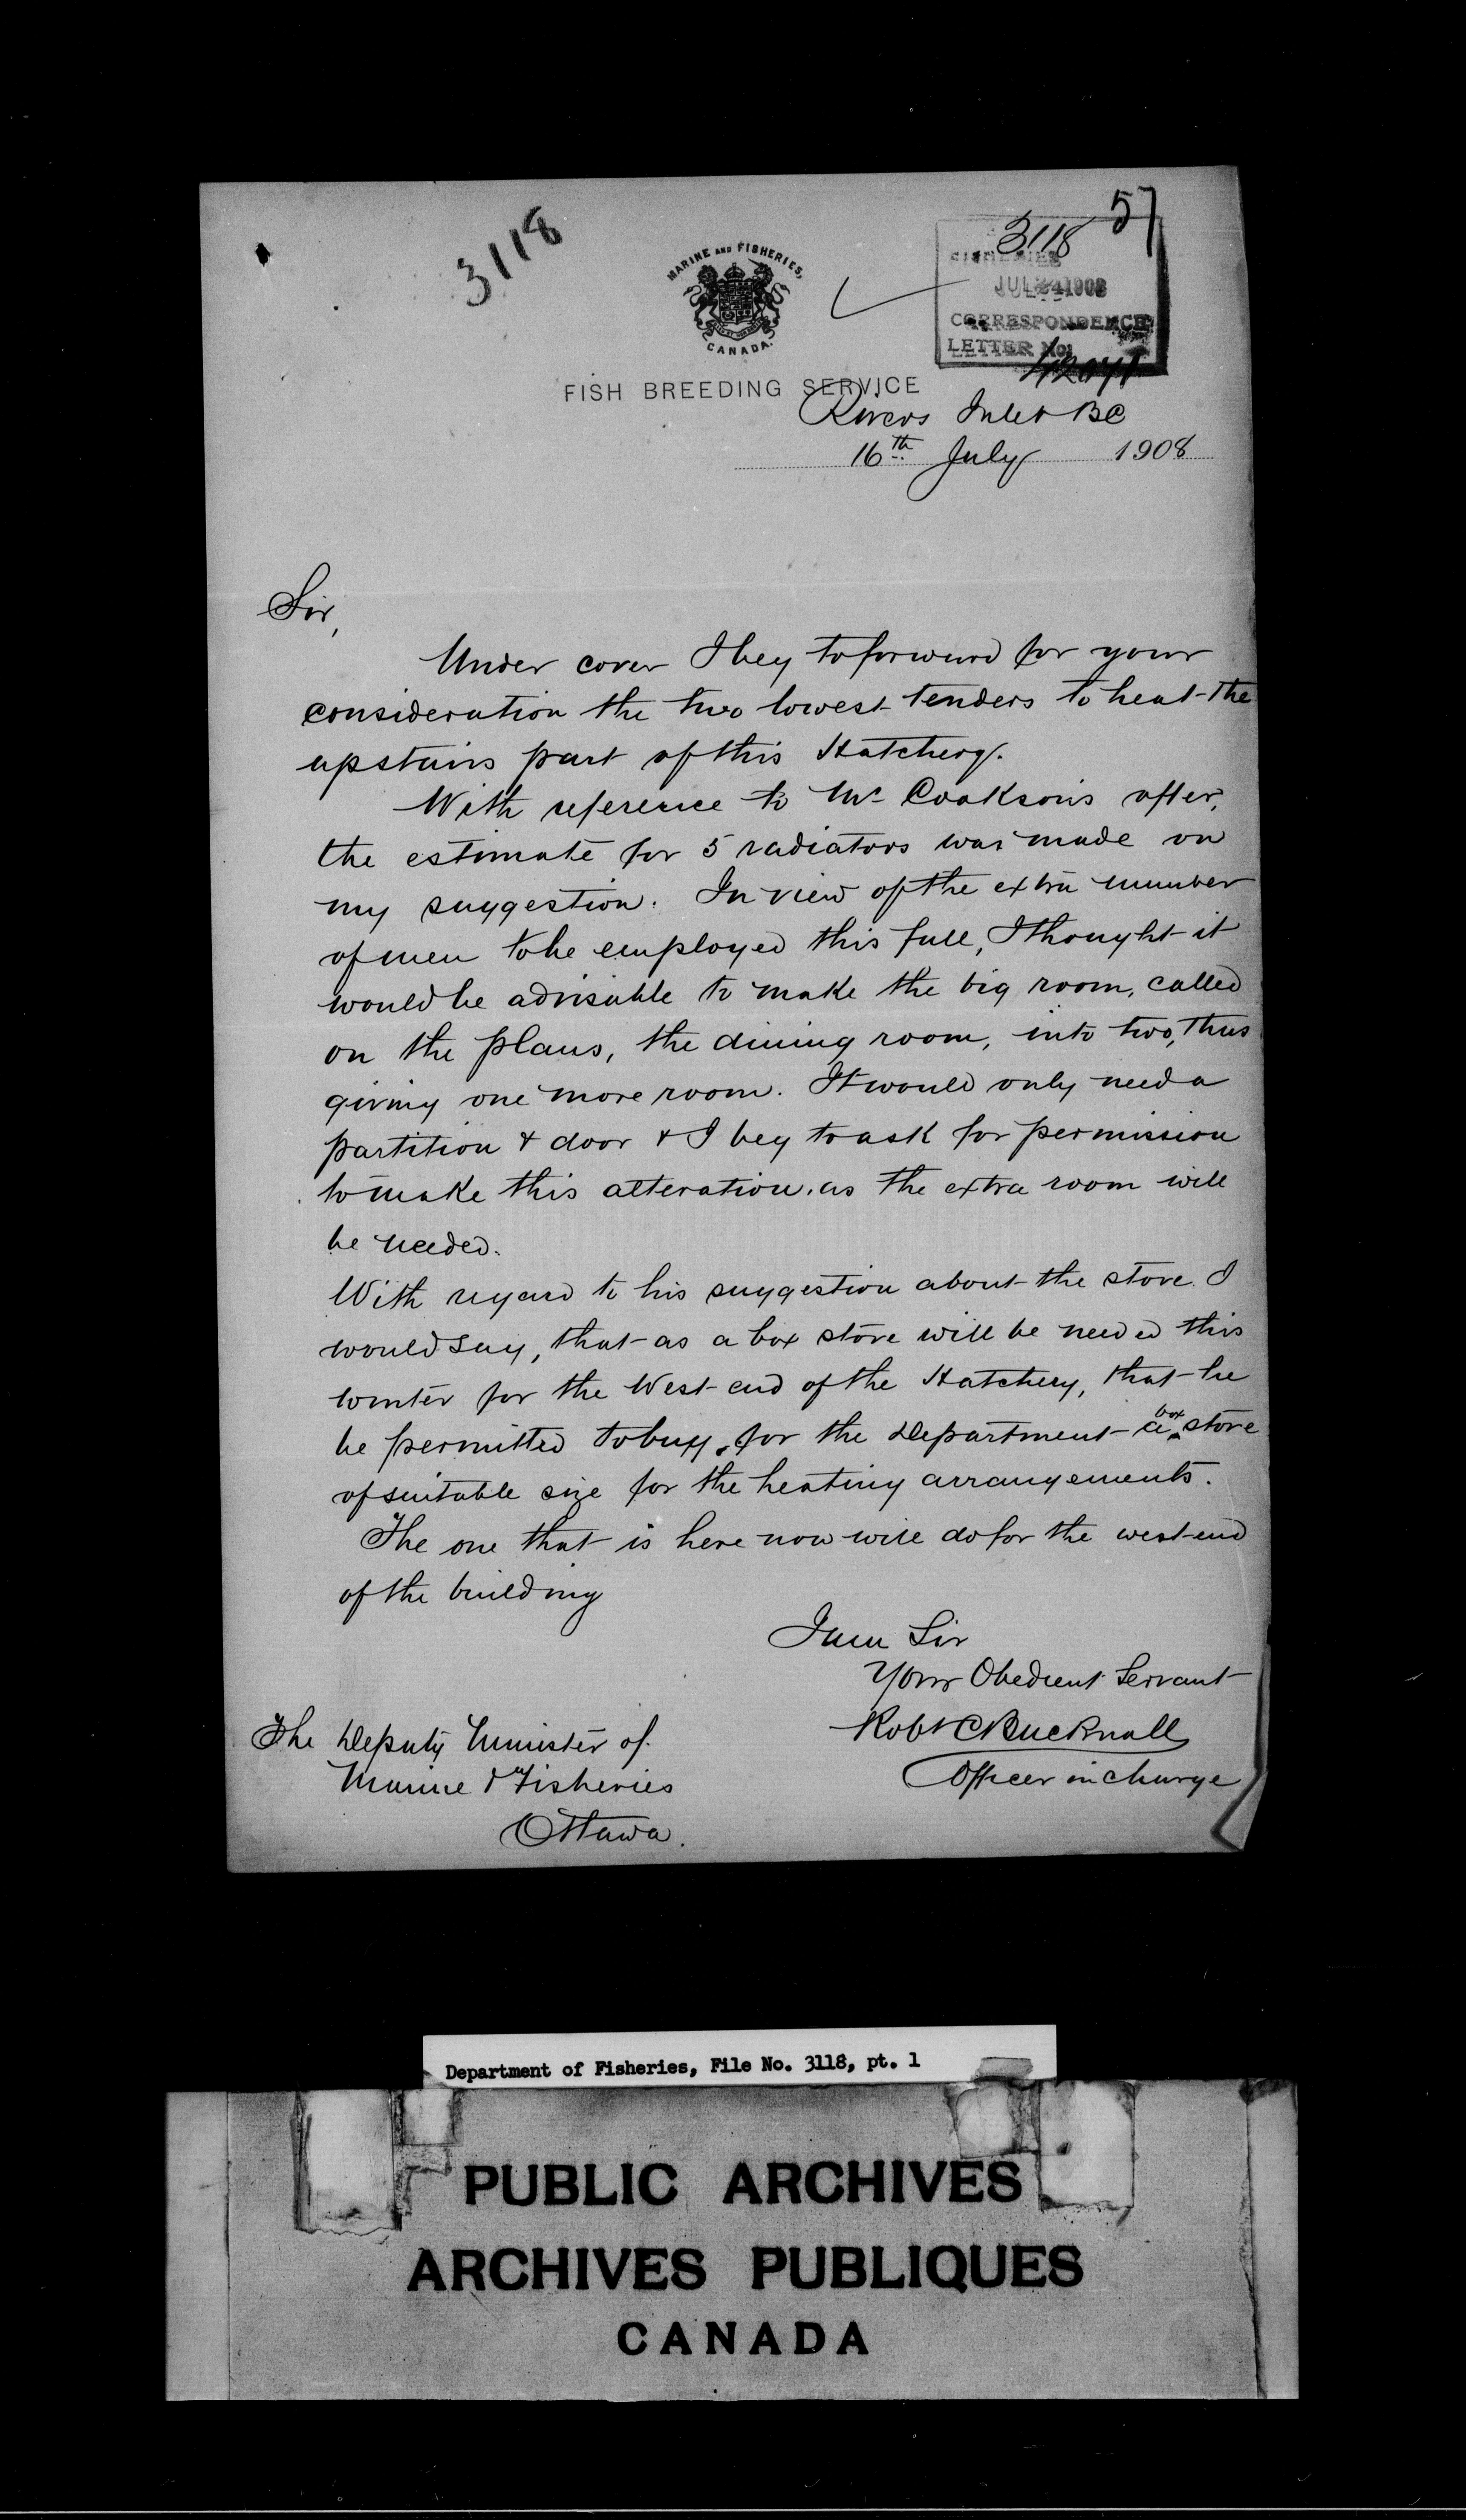 3118
57
3118
FISHERIES
JUL 24 1908
CORRESPONDENCE
LETTER No.
MARINE AND FISHERIES,
CANADA.
FISH BREEDING SERVICE
Rivers Inlet BC
16th July 1908
Sir,
Under cover I beg to forward for your
consideration the two lowest tenders to heat the
upstairs part of this Hatchery.
With reference to Mr Cookson's offer,
the estimate for 5 radiators was made on
my suggestion. In view of the extra number
of men to be employed this fall, I thought it
would be advisable to make the big room, called
on the plans, the dining room, into two, thus
giving one more room. It would only need a
partition & door & I beg to ask for permission
to make this alteration, as the extra room will
be needed.
With regard to his suggestion about the stove I
would say, that as a box stove will be needed this
winter for the West end of the Hatchery, that he
be permitted to buy for the Department a box stove
of suitable size for the heating arrangements.
The one that is here now will do for the west end
of the building
I am Sir
Your Obedient Servant
Robt C Bucknall
Officer in charge
The Deputy Minister of
Marine & Fisheries
Ottawa.
Department of Fisheries, File No. 3118, pt. 1
PUBLIC ARCHIVES
ARCHIVES PUBLIQUES
CANADA